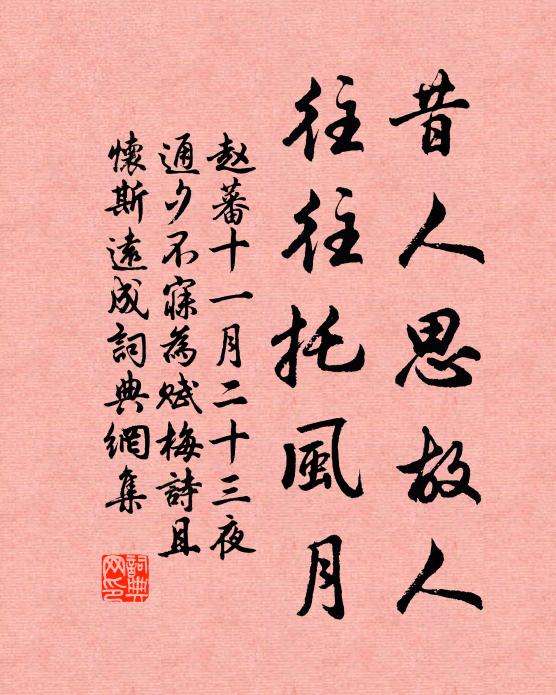 昔人思故人
往往托風月
赵蕃十一月二十三夜
通夕不寐為赋梅詩且
懷斯遠成詞典網集
詞典网印